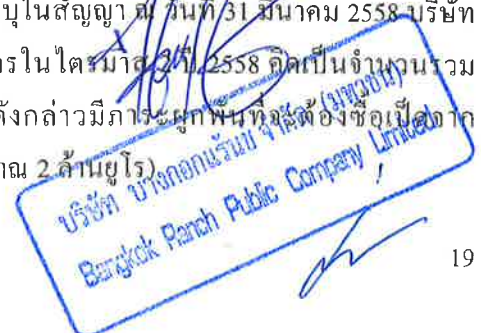 บุในสัญญา ณ วันที่ 31 มีนาคม 2558 บริษัท
รในไตรมาส 2 ปี 2558 คิดเป็นจำนวนรวม
ังกล่าวมีภาระผูกพันที่จะต้องซื้อเป็ดจาก
าณ 2 ล้านยูโร)
บริษัท บางกอกแร้นช์ จำกัด (มหาชน)
Bangkok Ranch Public Company Limited
19